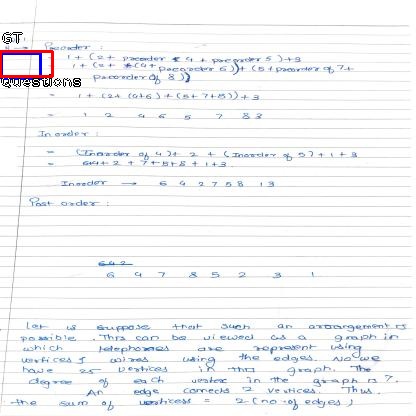 GT
Preorder :
1 + (2 + preorder 4 + preorder 5) + 3
1 + (2 + (4 + preorder 6)) + (5 + preorder of 7 +
Questions
preorder of 8))
= 1 + (2 + (4+6) + (5+7+8)) + 3
= 1 2 4 6 5 7 8 3
Inorder :
= (Inorder of 4) + 2 + (Inorder of 5) + 1 + 3
= 64 + 2 + 7+5+8 + 1+3
Inorder → 6 4 2 7 5 8 1 3
Post order :
642
6 4 7 8 5 2 3 1
Let us suppose that such an arrangement is
possible. This can be viewed as a graph in
which telephones are represent using
vertices & wires using the edges. No we
have 25 vertices in this graph. The
degree of each vertex in the graph is 7.
An edge connects 2 vertices. Thus
the sum of vertices = 2 (no. of edges)